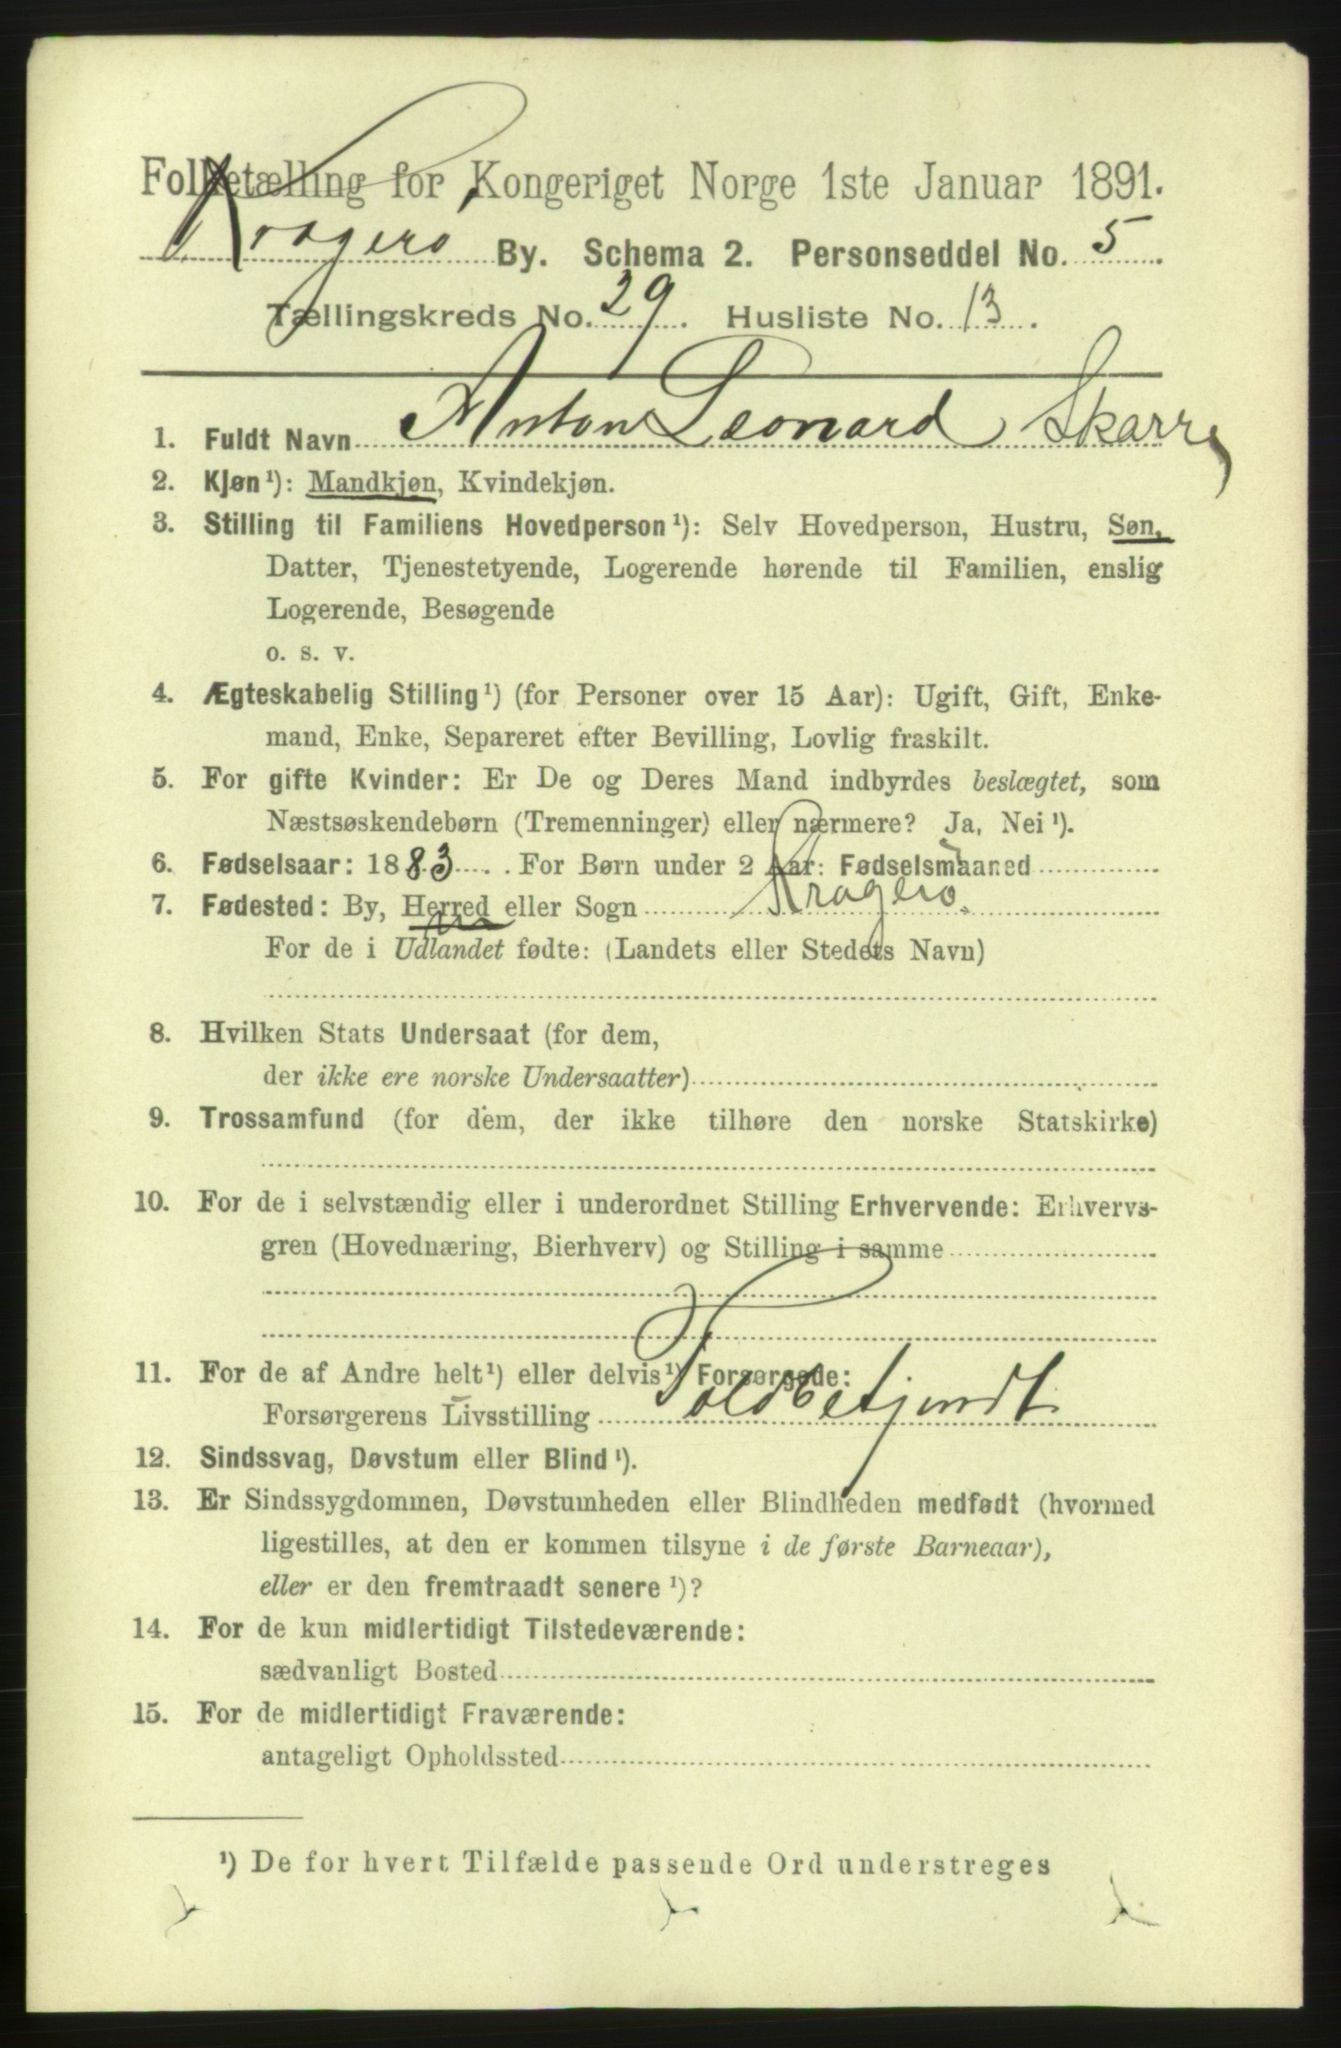 Folketælling for Kongeriget Norge 1ste Januar 1891.
Kragerø By. Schema 2. Personseddel No. 5.
Tællingskreds No. 29. Husliste No. 13.
1. Fuldt Navn Anton Leonard Skarre
2. Kjøn¹): Mandkjøn, Kvindekjøn.
3. Stilling til Familiens Hovedperson¹): Selv Hovedperson, Hustru, Søn,
Datter, Tjenestetyende, Logerende hørende til Familien, enslig
Logerende, Besøgende
o. s. v.
4. Ægteskabelig Stilling¹) (for Personer over 15 Aar): Ugift, Gift, Enke-
mand, Enke, Separeret efter Bevilling, Lovlig fraskilt.
5. For gifte Kvinder: Er De og Deres Mand indbyrdes beslægtet, som
Næstsøskendebørn (Tremenninger) eller nærmere? Ja, Nei¹).
6. Fødselsaar: 1883. For Børn under 2 Aar: Fødselsmaaned
7. Fødested: By, Herred eller Sogn Kragerø.
For de i Udlandet fødte: (Landets eller Stedets Navn)
8. Hvilken Stats Undersaat (for dem,
der ikke ere norske Undersaatter)
9. Trossamfund (for dem, der ikke tilhøre den norske Statskirke)
10. For de i selvstændig eller i underordnet Stilling Erhvervende: Erhvervs-
gren (Hovednæring, Bierhverv) og Stilling i samme
11. For de af Andre helt¹) eller delvis¹) Forsørgede:
Forsørgerens Livsstilling Toldbetjendt
12. Sindssvag, Døvstum eller Blind¹).
13. Er Sindssygdommen, Døvstumheden eller Blindheden medfødt (hvormed
ligestilles, at den er kommen tilsyne i de første Barneaar),
eller er den fremtraadt senere¹)?
14. For de kun midlertidigt Tilstedeværende:
sædvanligt Bosted
15. For de midlertidigt Fraværende:
antageligt Opholdssted
¹) De for hvert Tilfælde passende Ord understreges